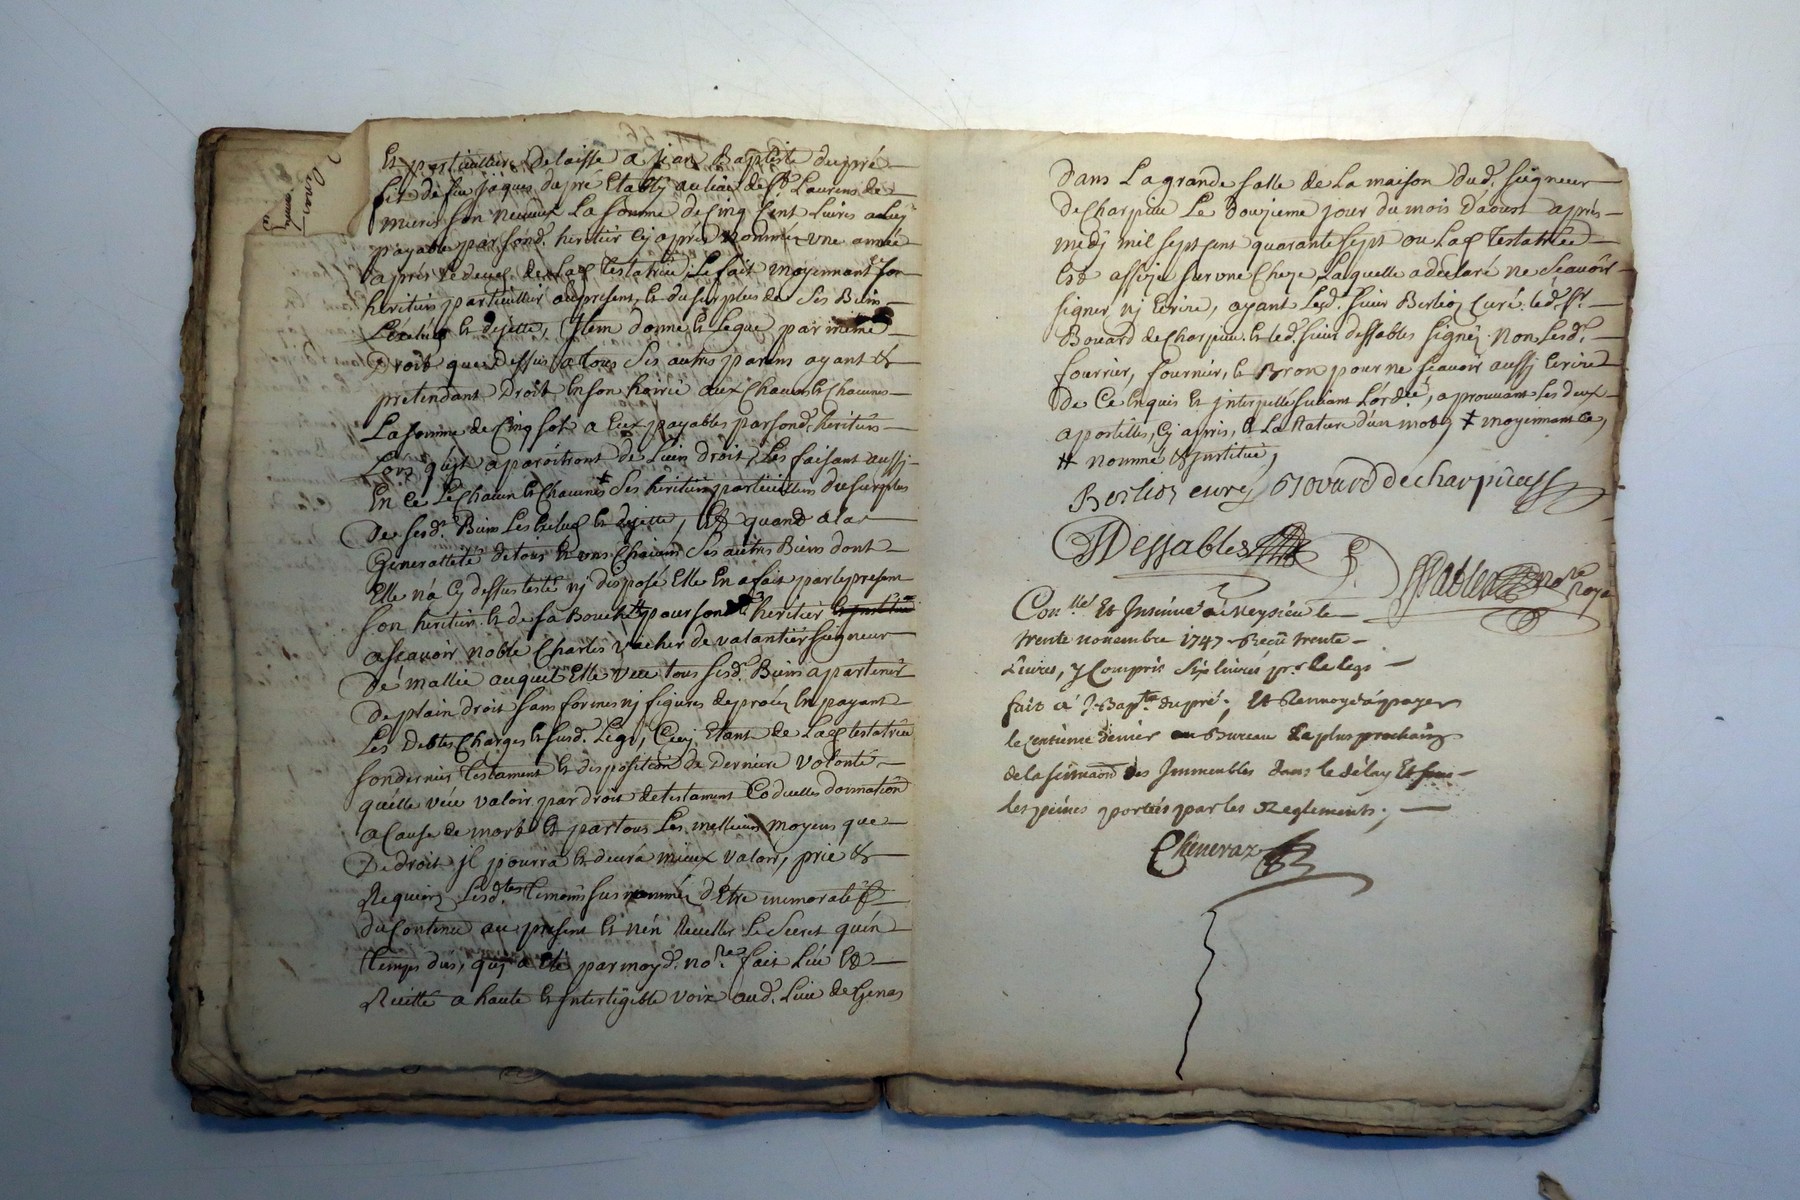 Et particulliere delaisse a jean Baptiste dupré
fils de feu jaques dupré Etably au lieu de St. Laurens de
mures son neveux La somme de Cinq Cent Livres a Luy
payable par sond. heritier Cy après nommé une année
après le deces de Lad testatrice Le fait moyennant son
heritier particullier au present, Et du surplus de Ses Biens
L'exclud Et dejette, Item donne Et Legue par même
Droit que dessus a tous Ses autres parens ayant Et
pretendant Droit En son hoirie aux Chacuns Et Chacunes
La somme de Cinq sols a Eux payables par sond. heritier
Lors qu'ils aparoitront de Leurs droit, Les faisant aussy
En Ce Le Chacun Et Chacunes ‡ Ses heritiers particulliers du surplus
De sesd. Biens Les Exclud Et dejette, Et quand a la
Generallité de tous Et uns Chacuns Ses autres Biens dont
Elle n'a Cy dessus testé nj disposé Elle En a fait par le present
son heritier Et de sa Bouche # pour son heritier
a scavoir noble Charles vacher de valantier seigneur
De mallie auquel Elle veut tous sesd. Biens apartenir
De plain droit sans formes nj figures de procés En payant
Les Debtes Charges Et susd. Legs, Cecy Etant de Lad testatrice
son dernier testament Et disposition de Derniere Volonté
quelle veut valoir par droit de testament Codicelles donnation
a Cause de mort Et par tous Les meilleurs moyens que
De droit il pourra Et devra mieux valoir, prie Et
Requiert Lesd.tes temoins sus nommés d'être memoratifs
du Contenu au present Et n'en Reveller Le Secret qu'en
temps dus, quj a Eté par moyd. no.re fait Leu Et
Recitté a haute Et Intertigible voix aud. Lieu de Genas
Dans La grande Salle de La maison dud. Seigneur
de Charpieu Le Douzieme jour du mois D'aoust après
medj mil sept cent quarante sept ou Lad testatrice
Est assize sur une Cheze, Laquelle a déclaré ne Scavoir
signer nj Ecrire, ayant Led. sieur Berlioz Curé. led. Sr
Bovard de Charpieu. Et led. sieur dessables signéz. Non Lesd.
fourrier, fournier, Et Bron pour ne scavoir aussj Ecrire
De Ce Enquis Et Interpellé suivant L'ord.ce, aprouvant les deux
apostilles, Cy après, Et La Rature d'un mot, ‡ moyennant Ce,
# nommé Et Institué,
Berlioz curé Bovard de charpieu
Dessables no.re Roya
Con.llé Et Insinué a Meyzieu le
trente novembre 1747 Receu trente
Livres, y Compris Six livres pr. Le legs
fait à J. Bap.te dupré, Et Renvoyé a payer
le Centieme denier au Bureau Le plus prochain
de la scituaon des Immeubles dans le délay Et sous
les peines portées par les Reglements.
Cheneraz